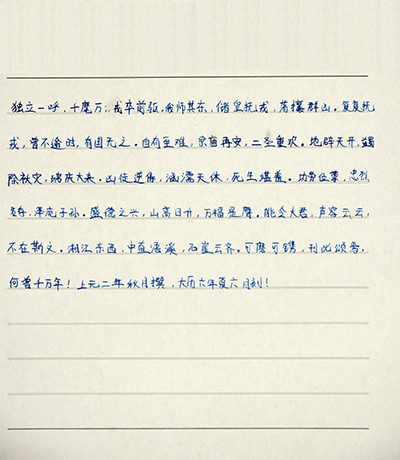 独立一呼,千麾万:,戎卒前驱.我师其东,储皇抚戎,荡攘群山.复复抚
戎,曾不逾时,有国无之.自有至难,宗庙再安,二圣重欢.地辟天开,蠲
除秋灾,瑞庆大来.凶徒逆俦,涵濡天休,死生堪羞.功劳位尊,忠烈
名存,泽流子孙.盛德之兴,山高日升,万福是膺.能令大君,声容云云,
不在斯文.湘江东西,中直浯溪,石崖云齐.可磨可镌,刊此颂焉,
何曾千万年!上元二年秋月撰,大历六年夏六月刻!